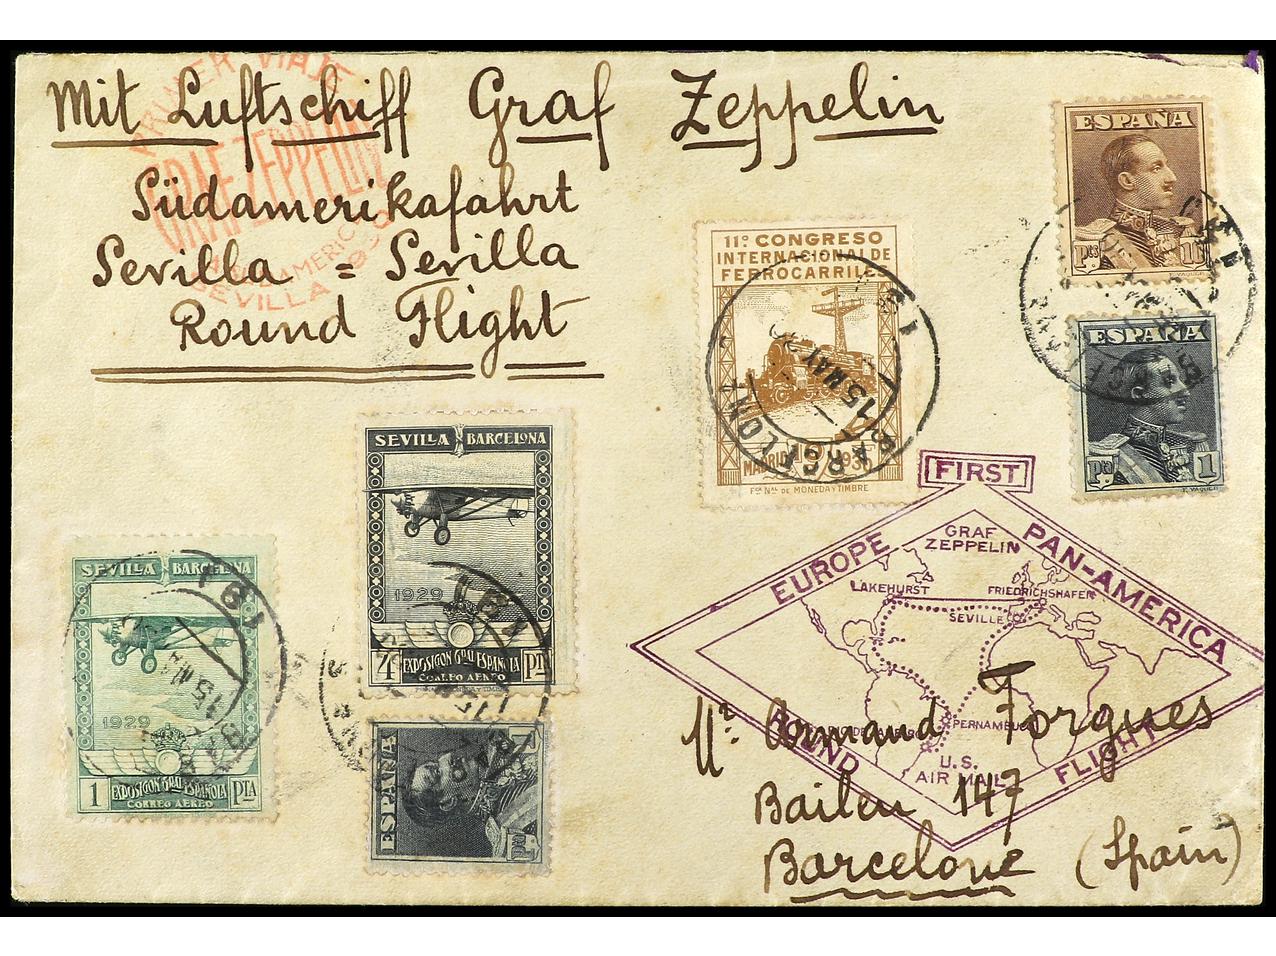 Mit Luftschiff Graf Zeppelin
Südamerikafahrt
Sevilla = Sevilla
Round Flight
PRIMER VIAJE
GRAF ZEPPELIN
SEVILLA
ESPAÑA
Pts 10
ESPAÑA
Pta 1
11º CONGRESO
INTERNACIONAL DE
FERROCARRILES
MADRID 1930
Fca NAL DE MONEDA Y TIMBRE
BARCELONA
15 MAY
SEVILLA BARCELONA
1929
4 EXPOSICION GRAL ESPAÑOLA Pts
CORREO AEREO
SEVILLA BARCELONA
1929
1 EXPOSICION GRAL ESPAÑOLA PTA
CORREO AEREO
ESPAÑA
FIRST
EUROPE PAN-AMERICA
GRAF
ZEPPELIN
LAKEHURST FRIEDRICHSHAFEN
SEVILLE
PERNAMBUCO
U.S.
AIR MAIL
ROUND FLIGHT
Mr. Armand Forgues
Bailen 147
Barcelone (Spain)